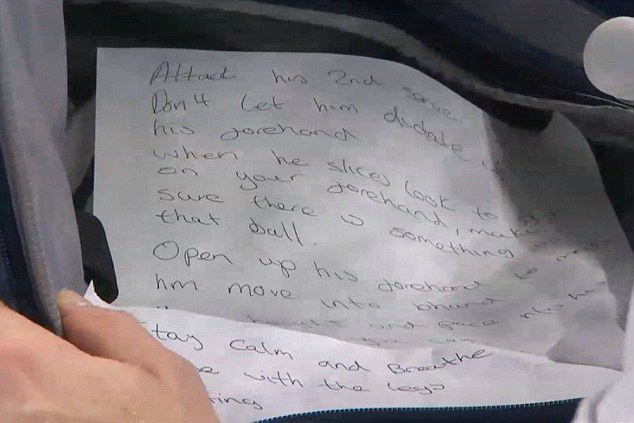 Attack his 2nd serve
Don't let him dictate
his forehand
when he slices look to
on your forehand, make
sure there is something
that ball.
Open up his forehand to
him move into bhand
and pace into
tay Calm and Breathe
with the legs
ting